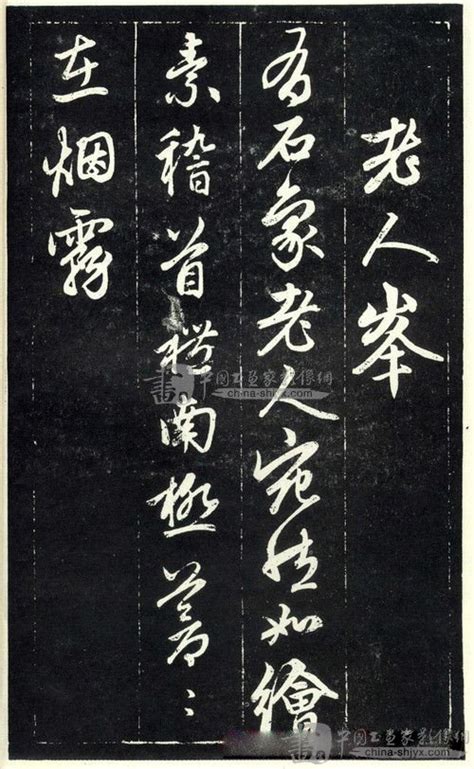 老人峯
有石象老人宛然如繪
素稽首禮南極蒼〻
在烟霧
中国书画家影像網
china-shjyx.com
中国书画家影像網
china-shjyx.com